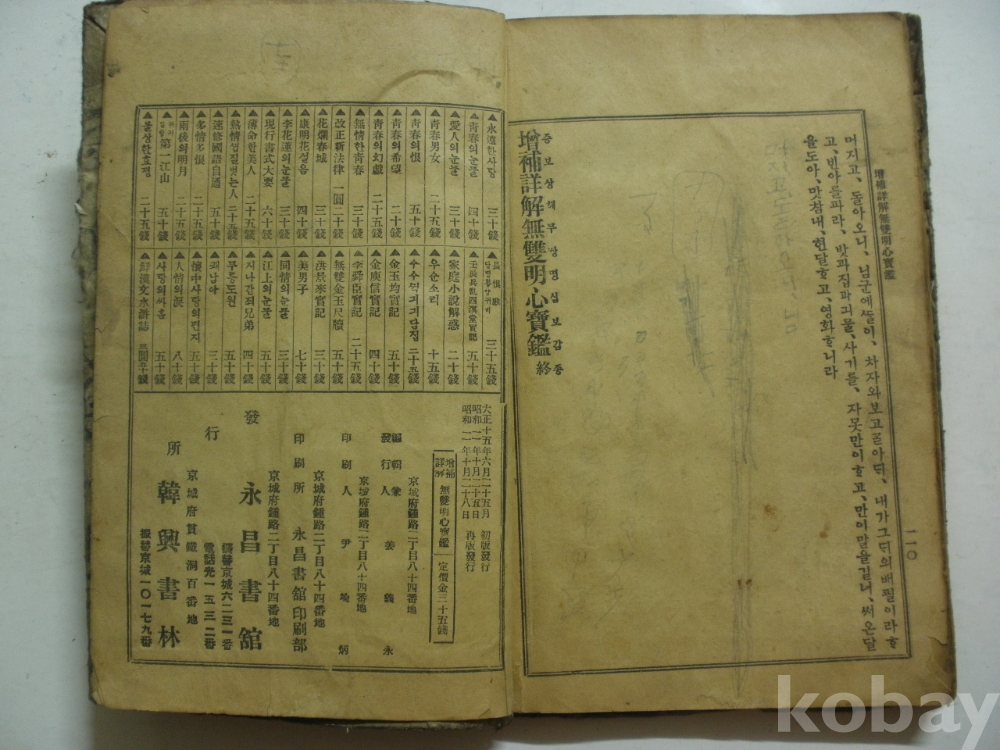 增補詳解無雙明心寶鑑
一一〇
머지고、돌아오니、님군에뜰이、차자와보고골아딕、내가그딕의배필이라ᄒ
고、빈아를파라、밧과집과긔물、사기를、자못만이ᄒ고、만이말을길너、써온달
을도아、맛참내、현달ᄒ고、영화ᄒ니라
증보상해무쌍명심보감종
增補詳解無雙明心寶鑑 終
▲永遠한사랑 三十錢
▲靑春의눈물 四十錢
▲愛人의눈물 三十錢
▲靑春男女 五十錢
▲靑春의恨 五十錢
▲靑春의希望 二十錢
▲靑春의幻戲 二十五錢
▲無情한靑春 三十錢
▲改正新法律 一圓二十錢
▲花爛春城 三十錢
▲康明花설음 四十錢
▲李花蓮의눈물 三十錢
▲現行書式大要 六十錢
▲薄命한美人 二十錢
▲速修國語自通 五十錢
▲多情多恨 二十錢
▲雨後의明月 二十五錢
第一江山 二十五錢
▲불상한호평 二十五錢
三十五錢
五十錢
▲家庭小說解惑 二十錢
▲우슌소리 十五錢
▲金玉均實記 五十錢
▲金庾信實記 四十錢
▲李舜臣實記 二十五錢
▲無雙金玉尺牘 五十錢
▲洪景來實記 四十錢
▲美男子 七十錢
▲同情의눈물 三十錢
▲江上의눈물 五十錢
▲지나간죄兄弟 四十錢
▲푸른도원 五十錢
▲쾌남아 三十錢
▲懷中사랑의편지 五十錢
▲人情의淚 八十錢
▲사랑의싸홈 五十錢
鮮漢文水滸誌
大正十五年六月二十五日 初版發行
昭和十一年十月二十五日
昭和十一年十月二十八日 再版發行
增補詳解 無雙明心寶鑑 定價金三十五錢
京城府鍾路二丁目八十四番地
編輯兼發行人 姜義永
京城府鍾路二丁目八十四番地
印刷人 尹炳
京城府鍾路二丁目八十四番地
印刷所 永昌書館印刷部
京城府鍾路二丁目八十四番地
發行所
永昌書館
振替京城六二三一番
電話光一五三二番
京城府貫鐵洞百番地
韓興書林
振替京城一〇一七九番
kobay